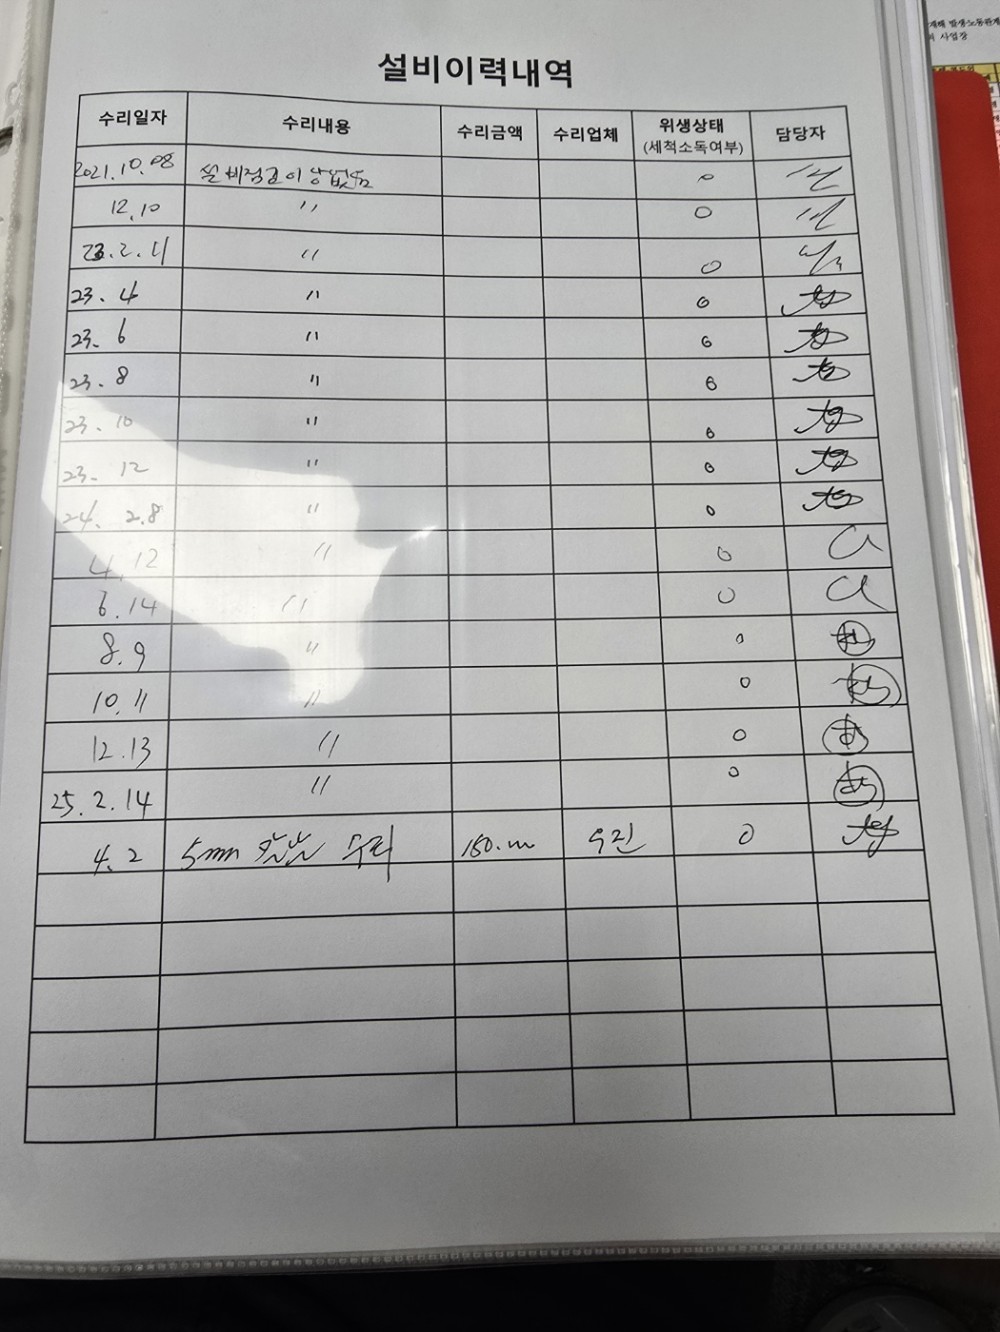 설비이력내역
수리일자 수리내용 수리금액 수리업체 위생상태 (세척소독여부) 담당자
2021.10.08 설비점검이상없음 o
12.10 〃 o
23.2.11 〃 o
23.4 〃 o
23.6 〃 o
23.8 〃 o
23.10 〃 o
23.12 〃 o
24.2.8 〃 o
4.12 〃 o
6.14 〃 o
8.9 〃 o
10.11 〃 o
12.13 〃 o
25.2.14 〃 o
4.2 5mm 칼날 수리 우진 o
사업장